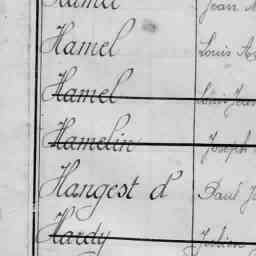 Hamel Jean
Hamel Louis
Hamel
Hamelin Joseph
Hangest d' Paul
Hardy Julien